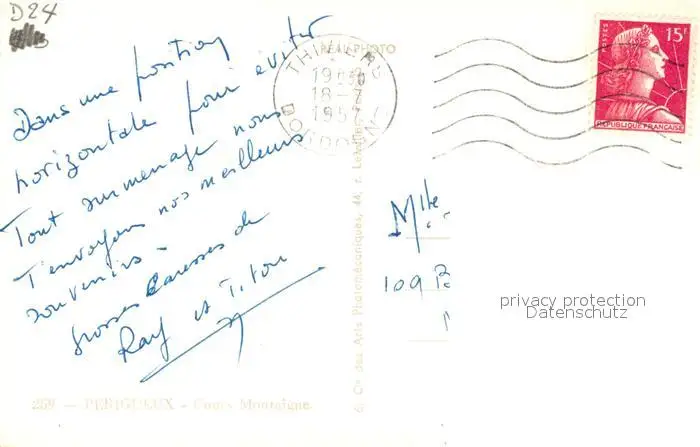 D24
Dans une position
horizontale pour éviter
Tout surmenage nous
T'envoyons nos meilleurs
souvenirs.
grosses Caresses de
Ray et Titou
RÉAL-PHOTO
THIVIERS
18
195
DORDOGNE
POSTES
15F
REPUBLIQUE FRANÇAISE
Mlle
109
privacy protection
Datenschutz
Cie des Arts Photomécaniques, 44, r. Letellier, Paris
259 — PÉRIGUEUX - Cours Montaigne